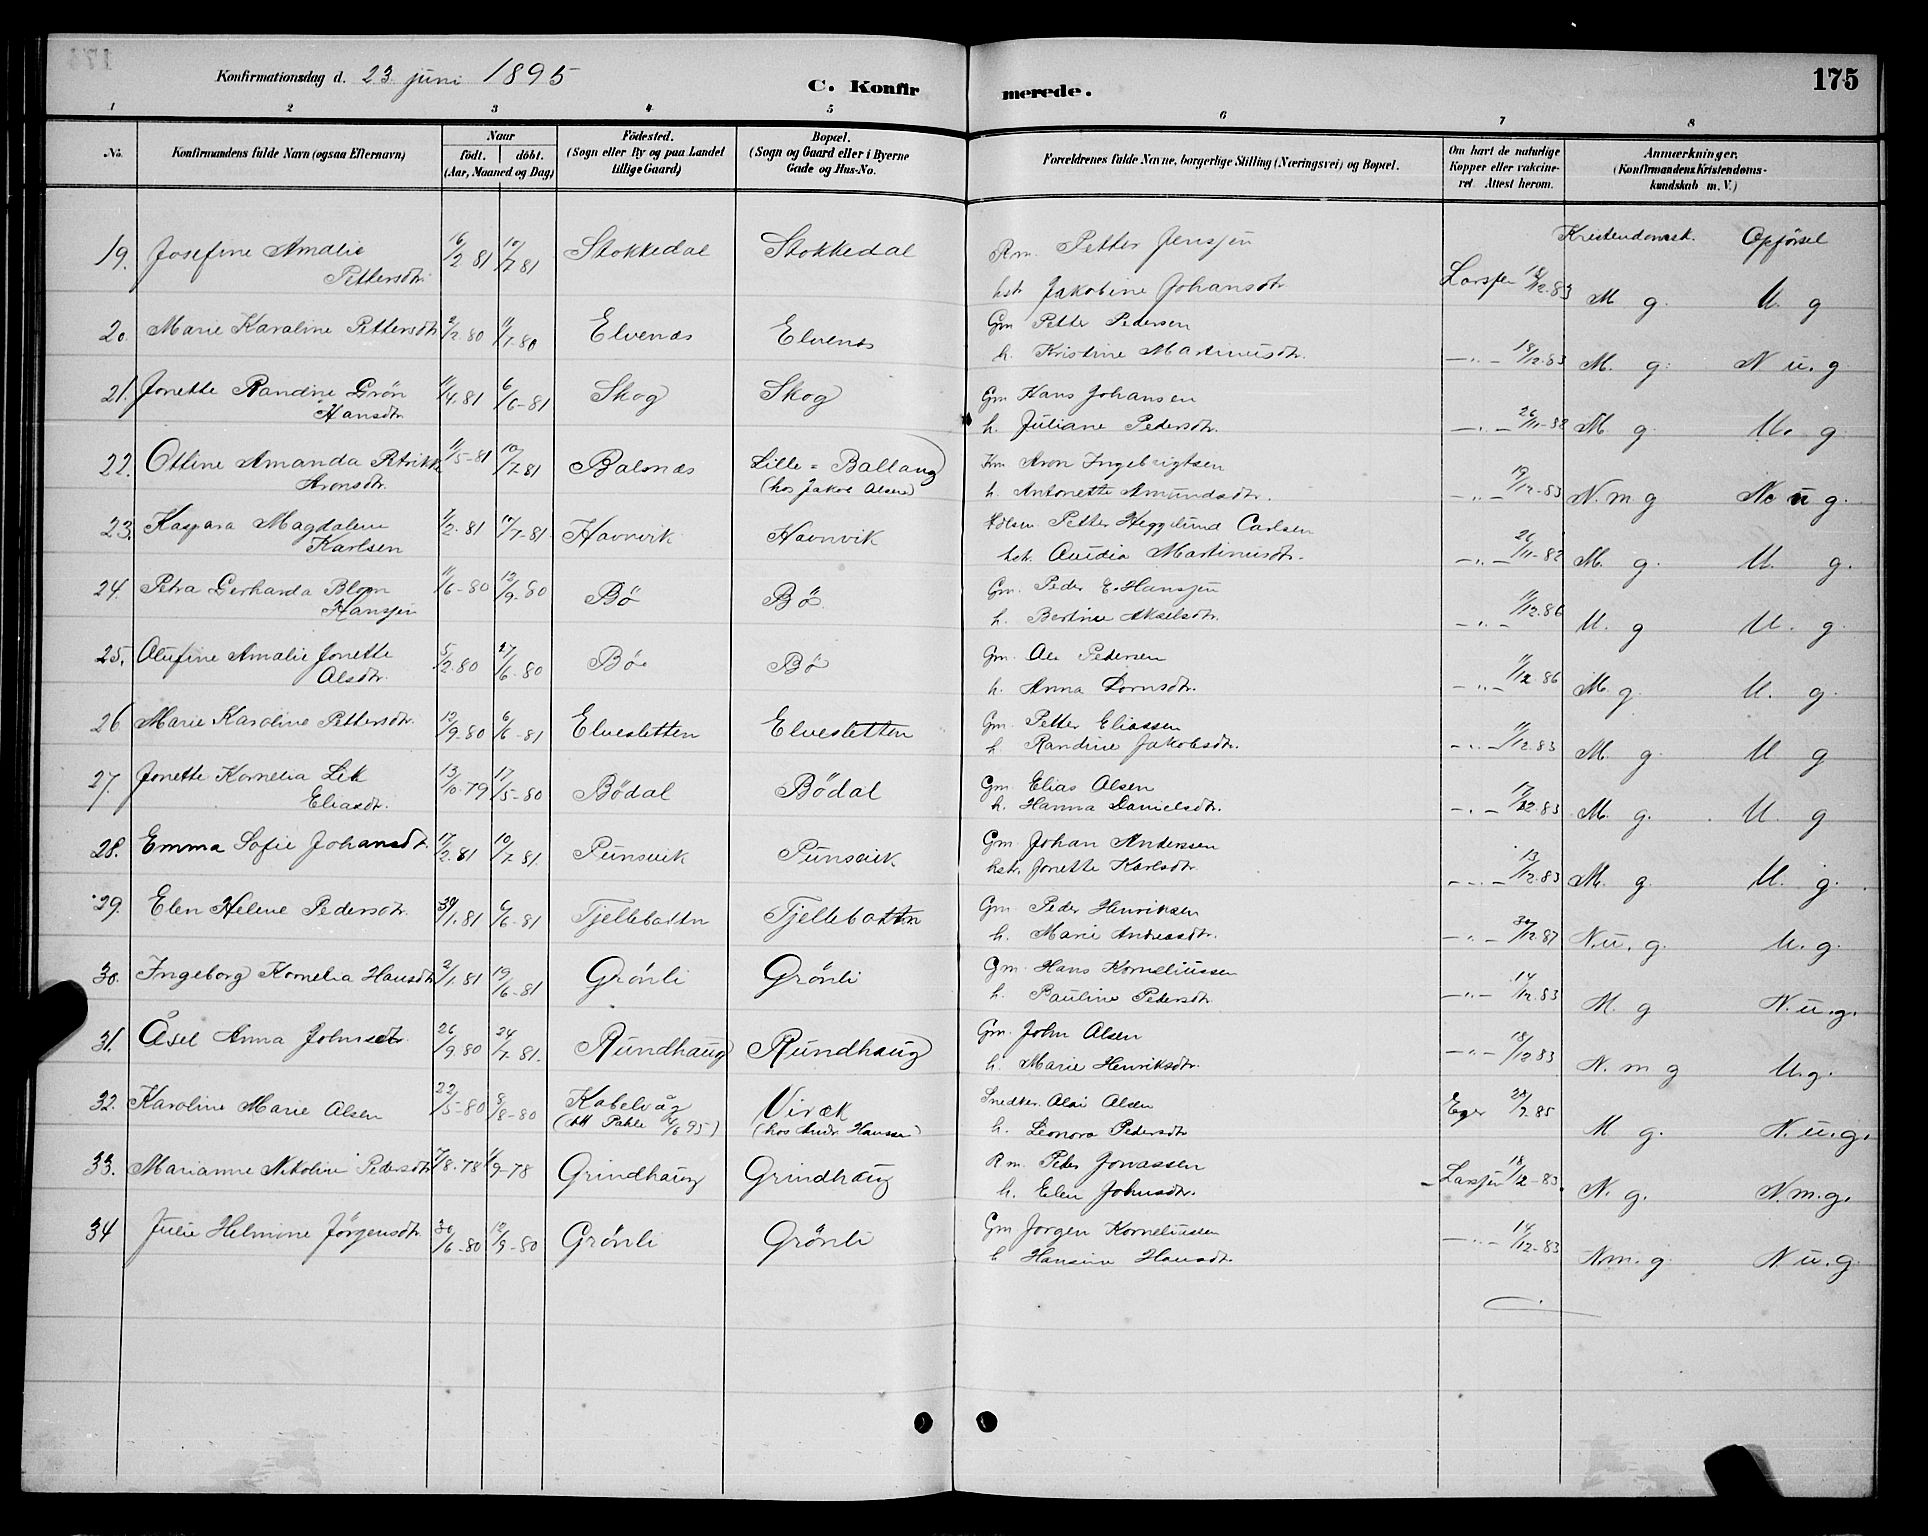 Konfirmationsdag d. 23 juni 1895
C. Konfirmerede.
175
1 2 3 4 5 6 7 8
No.
Konfirmandens fulde Navn (ogsaa Efternavn)
Naar
født. | døbt.
(Aar, Maaned og Dag)
Fødested.
(Sogn eller By og paa Landet
tillige Gaard)
Bopæl.
(Sogn og Gaard eller i Byerne
Gade og Hus-No.
Forældrenes fulde Navne, borgerlige Stilling (Næringsvei) og Bopæl.
Om havt de naturlige
Kopper eller vakcine-
ret. Attest herom.
Anmærkninger.
(Konfirmandens Kristendoms-
kundskab m. V.)
Kristendomsk. Opførsel
19. Josefine Amalie 16/2 81 10/7 81 Stokkedal Stokkedal Rm. Petter Jensen
Pettersdtr. hstr Jakobine Johansdtr Larssen 12.83 M g. M g
20. Marie Karoline Pettersdtr 2/2.80 11/1.80 Elvenes Elvenes Gm Petter Pedersen
h. Kristine Martinusdtr. -"- 18/12.83 M. g. N u. g
21. Jonette Randine Grön 11/4.81 6/6-81 Skog Skog Gm Hans Johansen
Hansdtr. h. Juliane Pedersdtr. -"- 26/11-82 M g. M. g.
22. Otline Amanda Petrikke 11/5-81 10/7.81 Balsnes Lille-Ballang Km Aron Ingebrigtsen
Aronsdtr. (hos Jakob Olsen) h. Antonette Amundsdtr. -"- 19/12-83 N. m g u g.
23. Kaspara Magdalene 2.81 10/7-81. Havnvik Havnvik Petter Hegglund Carlsen
Karlsen hstr. Ovidia Martinusdtr. -"- 26/11-82 M. g. M. g.
24 Petra Gerharda Blom 11/6-80 12/9-80 Bö Bö. Gm. Peder E. Hanssen
Hanssen h. Bertine Akselsdtr. -"- 11/12.86 M. g M. g.
25. Olufine Amalie Jonette 5/2.80 27/6.80 Bö Bö Gm. Ole Pedersen
Olsdtr. h. Anna -"- 11/12 86 M. g. M. g.
26 Marie Karoline Pettersdtr. 12/9-80 6/6-81 Elvesletten Elvesletten Gm. Petter Eliassen
h Randine Jakobsdtr. -"- 11/12.83 M. g. M g
27. Jonette Kornelia Lek 13/10.79 17/5-80 Bödal Bödal Gm. Elias Olsen
Eliasdtr. h. Hanna Danielsdtr. -"- 12.83 M. g. M g
28. Emma Sofie Johansdtr. 17/2.81 10/7.81 Punsvik Punsvik Gm. Johan Andersen
hstr. Jonette Karlsdtr -"- 13/12.83 M. g. M. g.
29. Elen Helene Pedersdtr. 1.81 6/6-81 Tjellebottn Tjellebottn Gm. Peder Henriksen
h. Marie Andreasdtr. -"- 12.87 N. u. g. M. g.
30. Ingeborg Kornelia Hansdtr 2/1.81 19/6-81 Grönli Grönli Gm. Hans Korneliussen
h. Pauline Pedersdtr. -"- 14/12.83 M. g N. u. g.
31. Åsel Anna Johnsdtr. 26/9.80 24/7.81. Rundhaug Rundhaug Gm. John Olsen
h. Marie Henriksdtr. -"- 18/12 83 N. m g M. g.
32. Karoline Marie Olsen 22/5-80 8/8-80 Kabelvåg Virek Snedker. Olai Olsen
(Att Pahle 6 95) (hos Andr. Hansen) h. Leonora Pedersdtr Eger 7.85 M g. N. u. g.
33. Marianne Nikoline Pedersdtr 8.78 9-78 Grindhaug Grindhaug Rm. Peder Jonassen
h. Elen Johnsdtr. Larssen 18/12-83. N. g. N. m. g.
34 Julie Helmine Jörgensdtr. 20/6-80 12/9-80 Grönli Grönli Gm. Jorgen Korneliussen
h Hansine Hansdtr. -"- 14/12-83 N. m. g. N u. g.